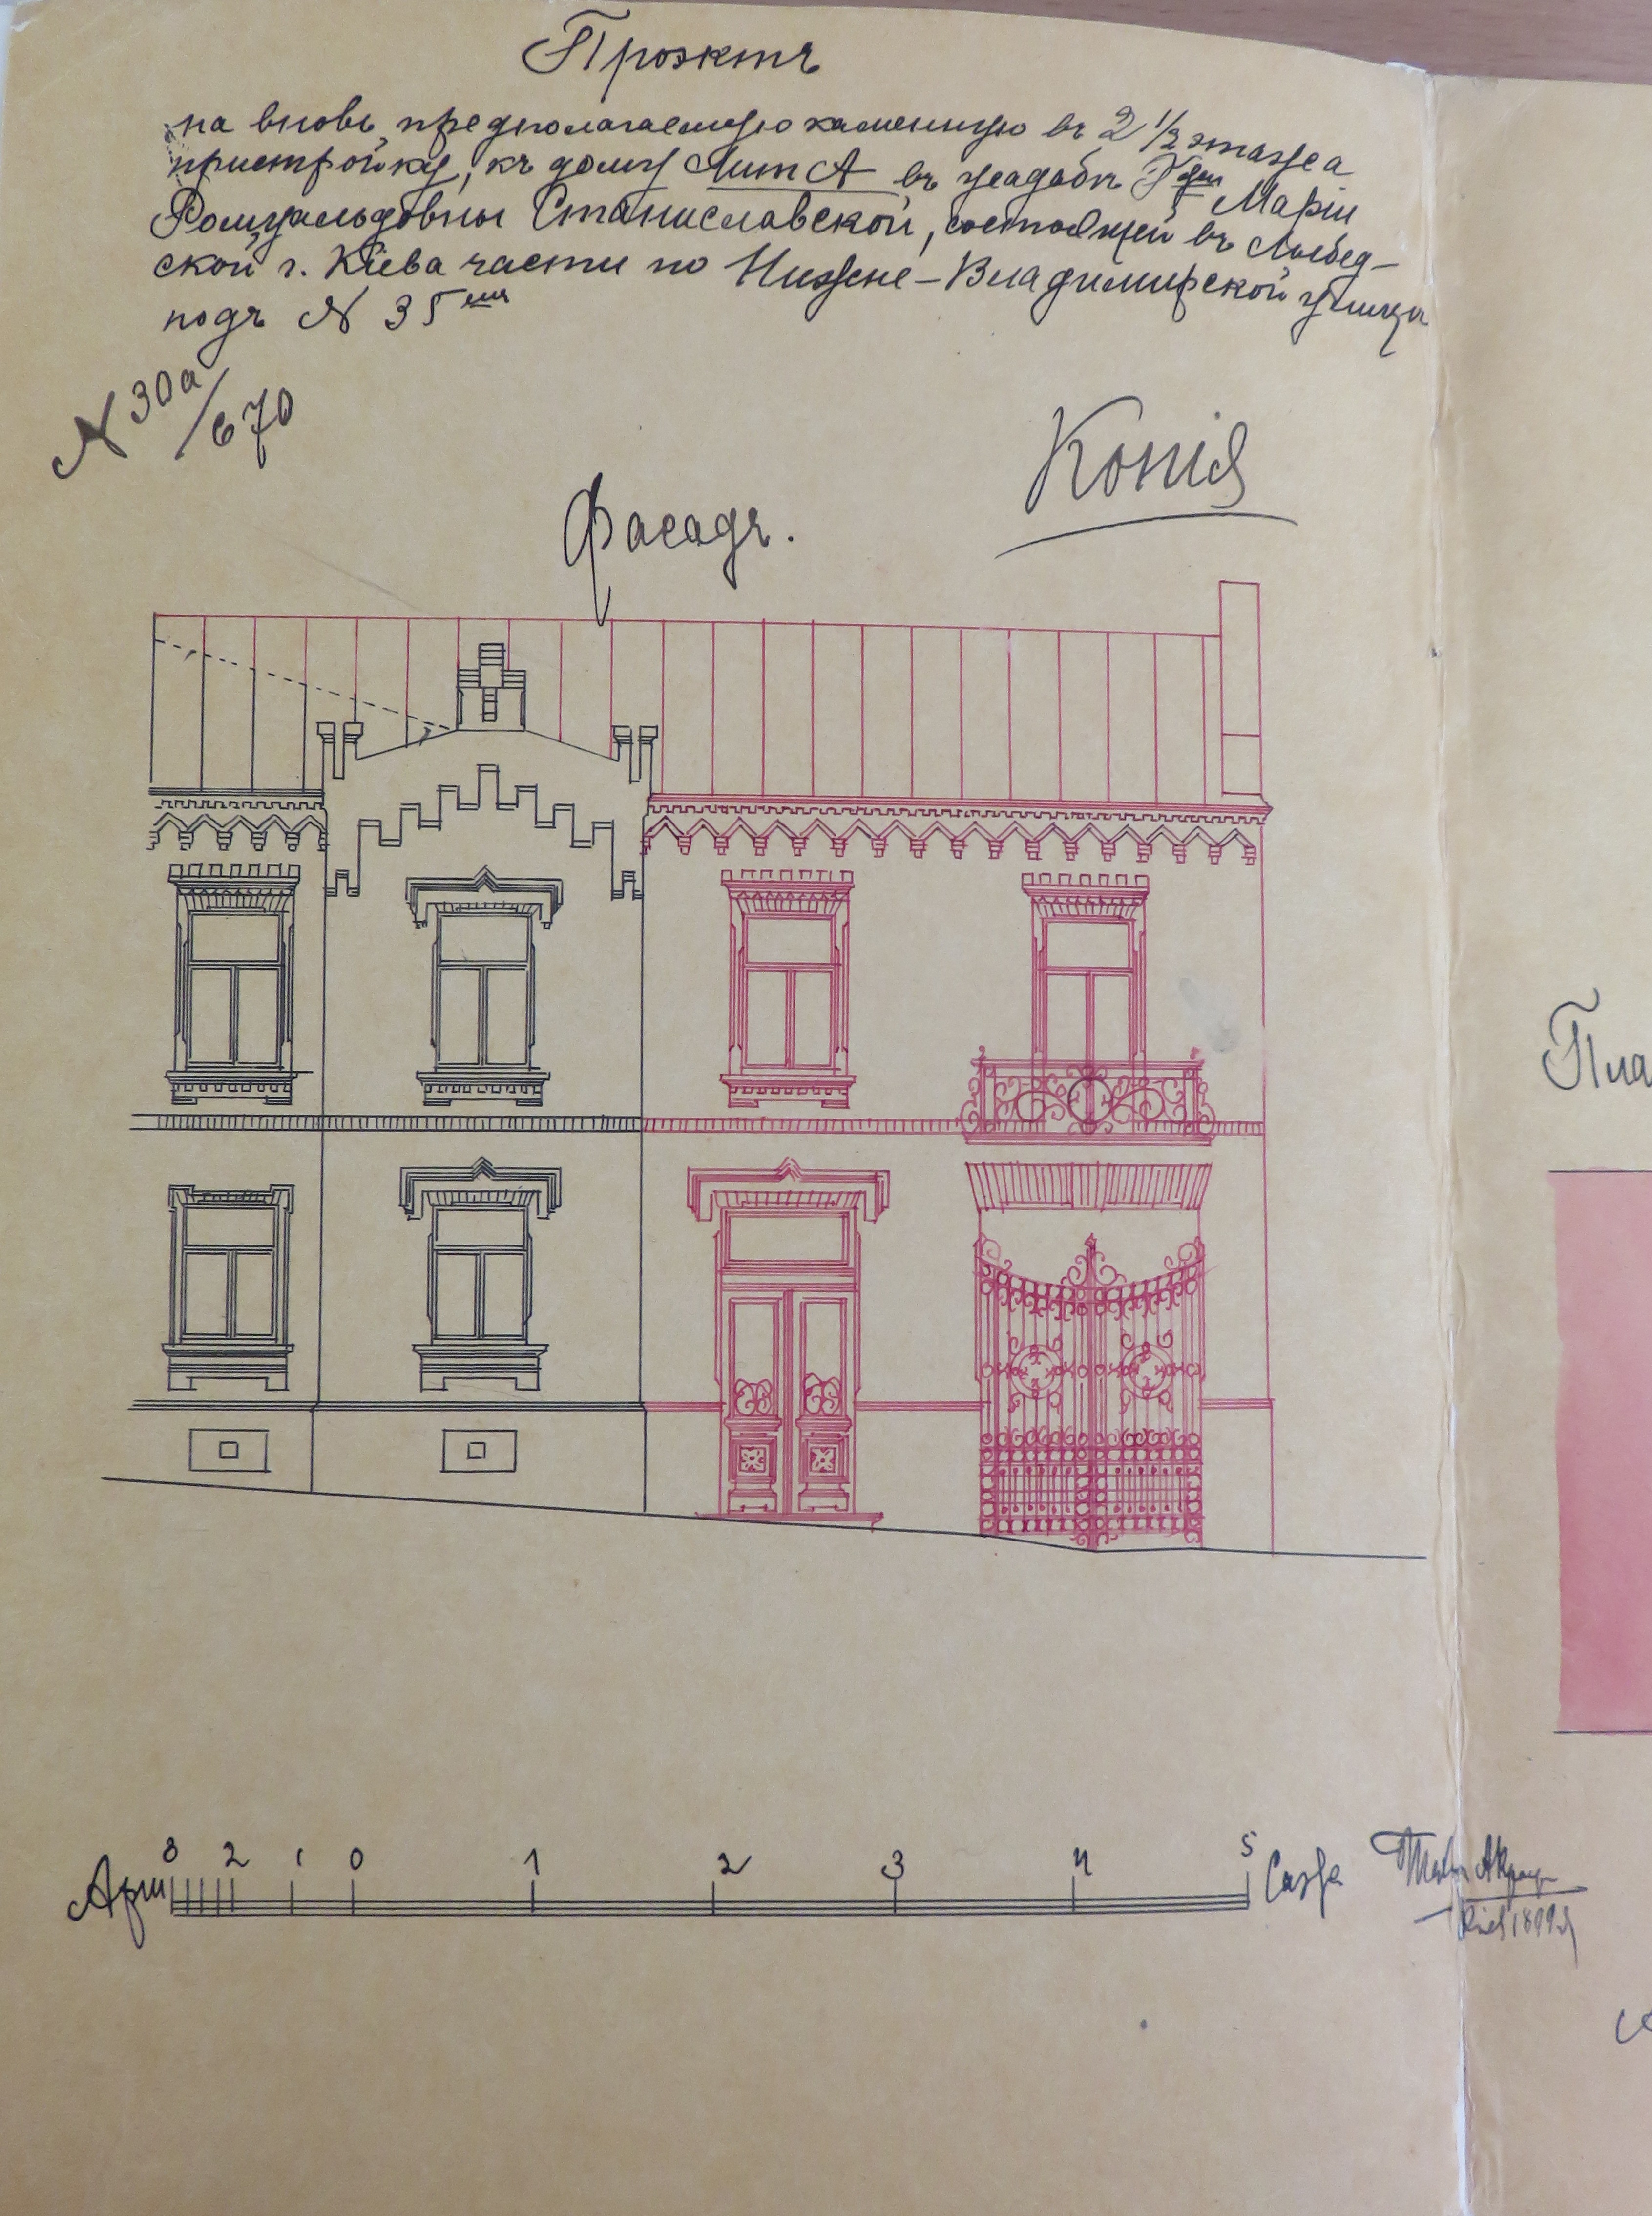 Проэктъ
на вновь предполагаемую каменную въ 2 1/2 этажа
пристройку, къ дому Лит А въ усадьбѣ Г-жи Маріи
Ромуальдовны Станиславской, состоящей въ Лыбед-
ской г. Кіева части по Нижне-Владимирской улицѣ
подъ № 35-мъ
№ 30а/670
Копія
Фасадъ.
Пла
Арш 3 2 1 0 1 2 3 4 5 Саже